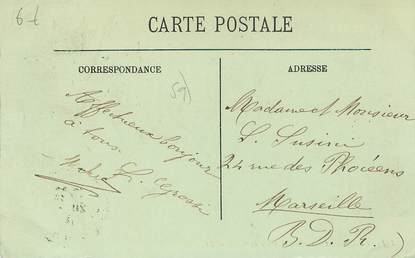 6 t
CARTE POSTALE
CORRESPONDANCE
ADRESSE
59
Affectueux bonjour
à tous
Madame et Monsieur
L. Susini
24 rue des Phocéens
Marseille
B. D. R.